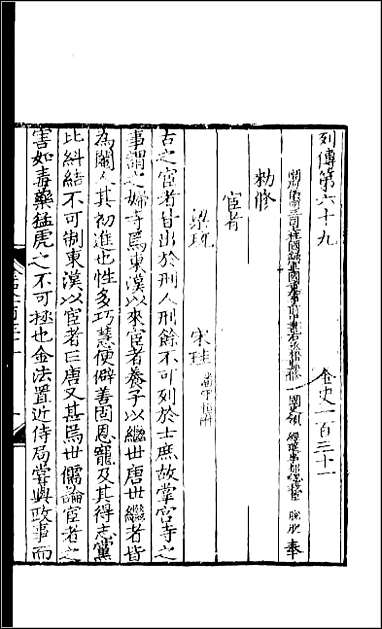 列傳第六十九 金史一百三十一
開府儀同三司上柱國錄軍國重事前中書右丞相監修國史領經筵事都總裁臣脫脫奉
勑修
宦者
梁珫 宋珪 潘守恒附
古之宦者皆出於刑人刑餘不可列於士庶故掌宮寺之
事謂之婦寺焉東漢以來宦者養子以繼世唐世繼者皆
為閹人其初進也性多巧慧便僻善固恩寵及其得志黨
比糾結不可制東漢以宦者亡唐又甚焉世儒論宦者之
害如毒藥猛虎之不可拯也金法置近侍局嘗與政事而